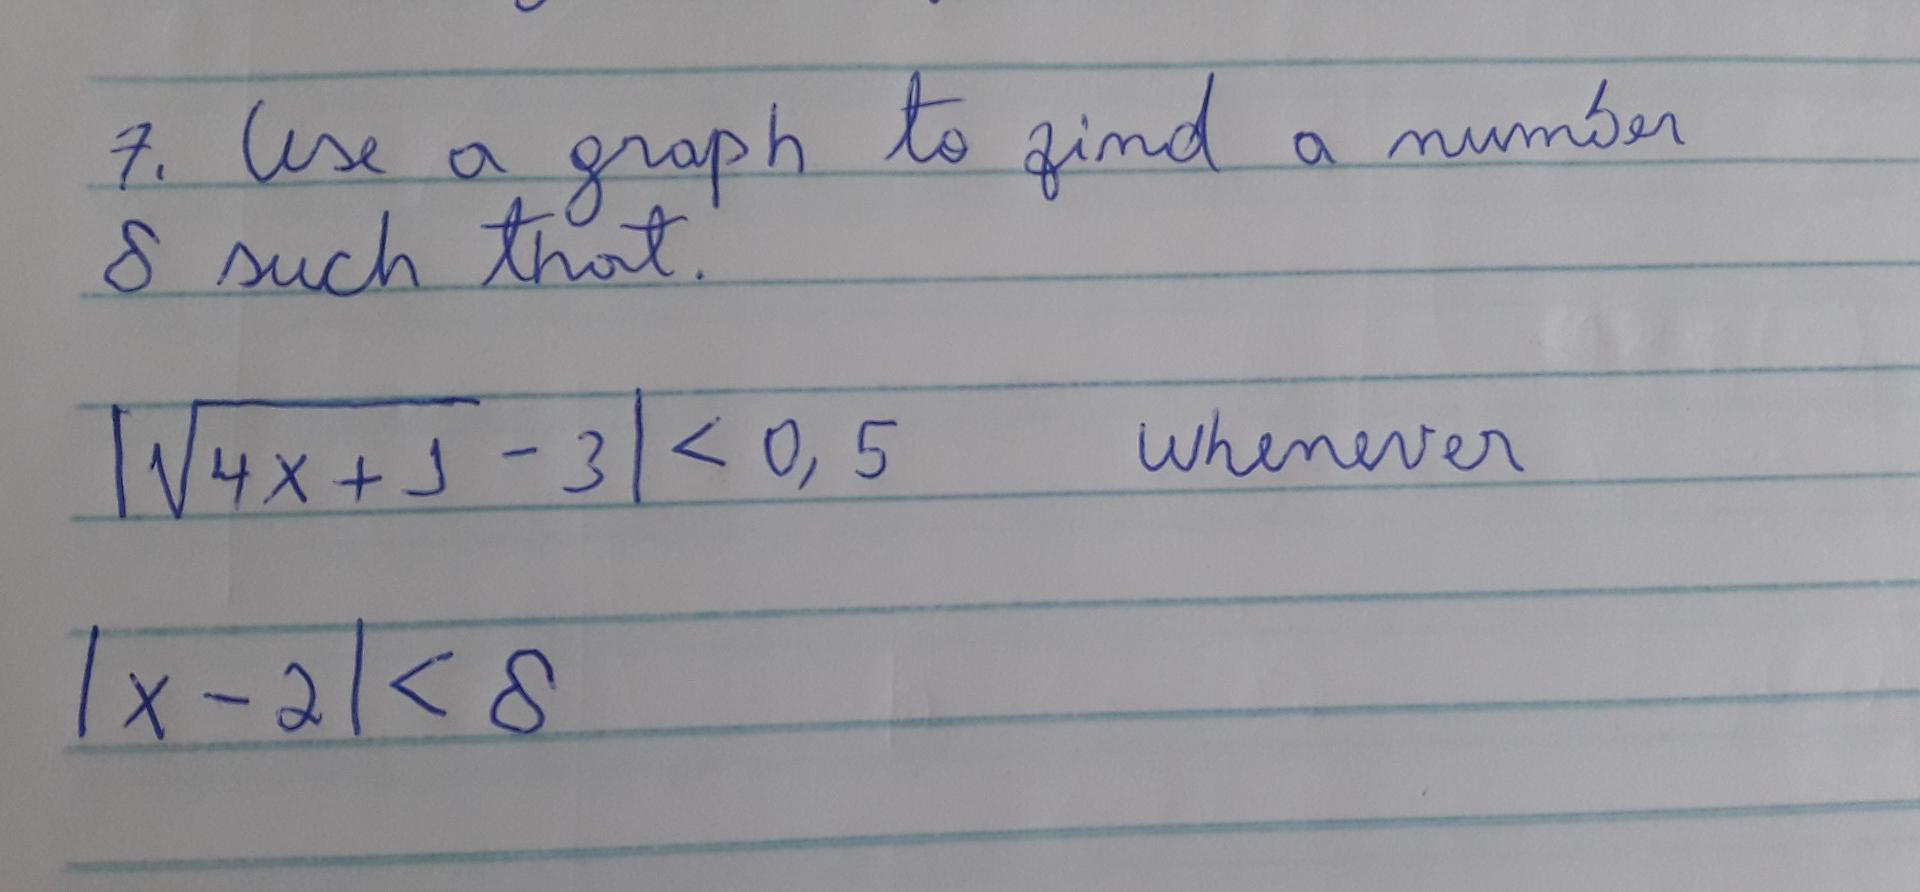 7. Use a graph to find a number
δ such that.
|√4x+1 - 3| < 0,5 whenever
|x-2| < δ